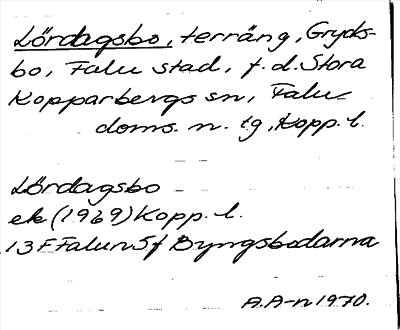 Lördagsbo, terräng, Grycks-
bo, Falu stad, f.d. Stora
Kopparbergs sn, Falu
doms. n. tg, Kopp. l.
Lördagsbo
ek (1969) Kopp. l.
13F Falun 5f Byngsbodarna
A.A-n 1970.